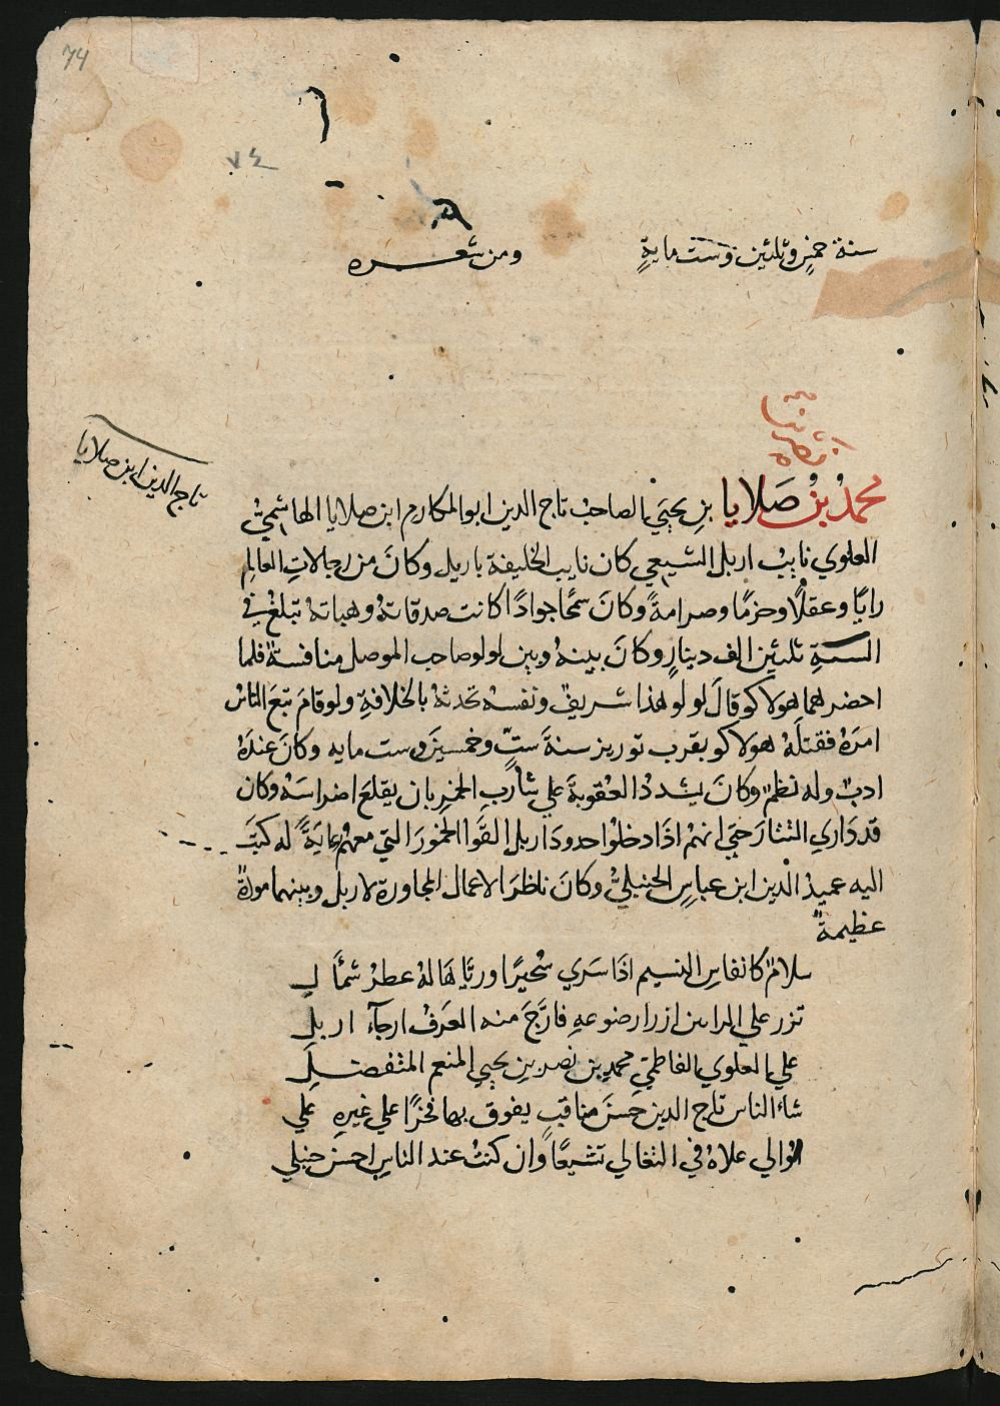 74
٧٤
سنة خمسٍ وثلثين وست مايةٍ ومن شعره
محمدُ بنُ صَلايا بنِ يحيَي الصاحبُ تاج الدين ابوالمكارم ابن صلايا الهاشميُّ
تاج الدين ابن صلايا
العلوي نايبُ اربل الشيعي كان نايب الخليفة باربل وكانَ من رجالاتِ العالِم
رايًا وعقلًا وحزمًا وصرامةً وكانَ سمحًا جوادًا كانت صدقاتهُ وهباتهُ تبلغُ في
السنةِ ثلثين الف دينارٍ وكانَ بينهُ وبين لولو صاحب الموصل منافسةٌ فلما
احضرهما هولاكو قالَ لولو هذا شريفٌ ونفسهُ تحدثهُ بالخلافةِ ولو قامَ تبعَ الناسُ
امرَهُ فقتلَهُ هولاكو بقرب توريز سنةَ ستٍّ وخمسينَ وست مايه وكانَ عندَهُ
ادبٌ وله نظمٌ وكانَ يشددُ العقوبةَ علي شاربِ الخمرِ بان يقلعَ اضراسَهُ وكان
قد دَاري التتارَ حتي انهمْ اذَا دخلوا حدودَ اربل القَوا الخمورَ التي معهمْ رعايَةً له كتبَ
اليه عميدُ الدين ابن عباسٍ الحنبليُّ وكانَ ناظرَ الاعمال المجاورة لاربل وبينهما مودةٌ
عظيمةٌ
سلامٌ كانفاسِ النسيم اذَا سَري سُحيرًا وريَّاهَا لهُ عطرُ شمأَلِ
تزر علي ازرار ضوعهِ فارَّجَ منه العَرفُ ارجآءَ اربلِ
علي العلوي الفاطميِّ محمدِ بن نصر بنِ يحيي المنعم المتفضلِ
شاءَ الناس تاج الدين حسنَ مناقبٍ يفوق بها فخرًا علي غيرِهِ عَلي
اوالي علاهُ في التغالي تشيعًا وان كنتُ عند الناسِ احسن حنبلي